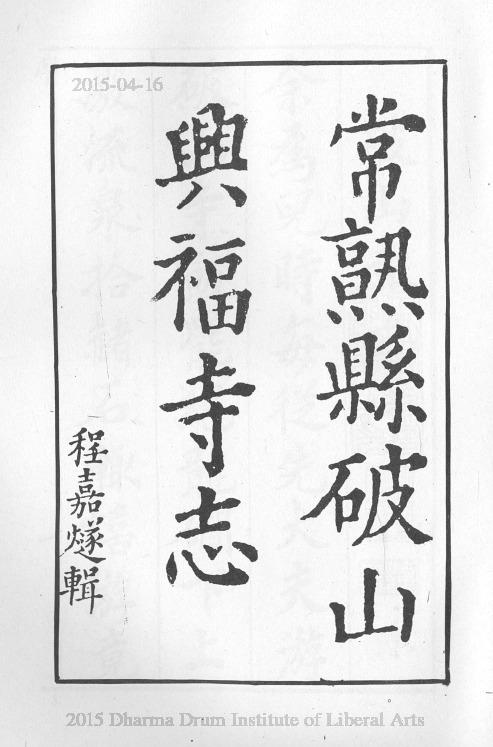 2015-04-16
常熟縣破山
興福寺志
程嘉燧輯
2015 Dharma Drum Institute of Liberal Arts